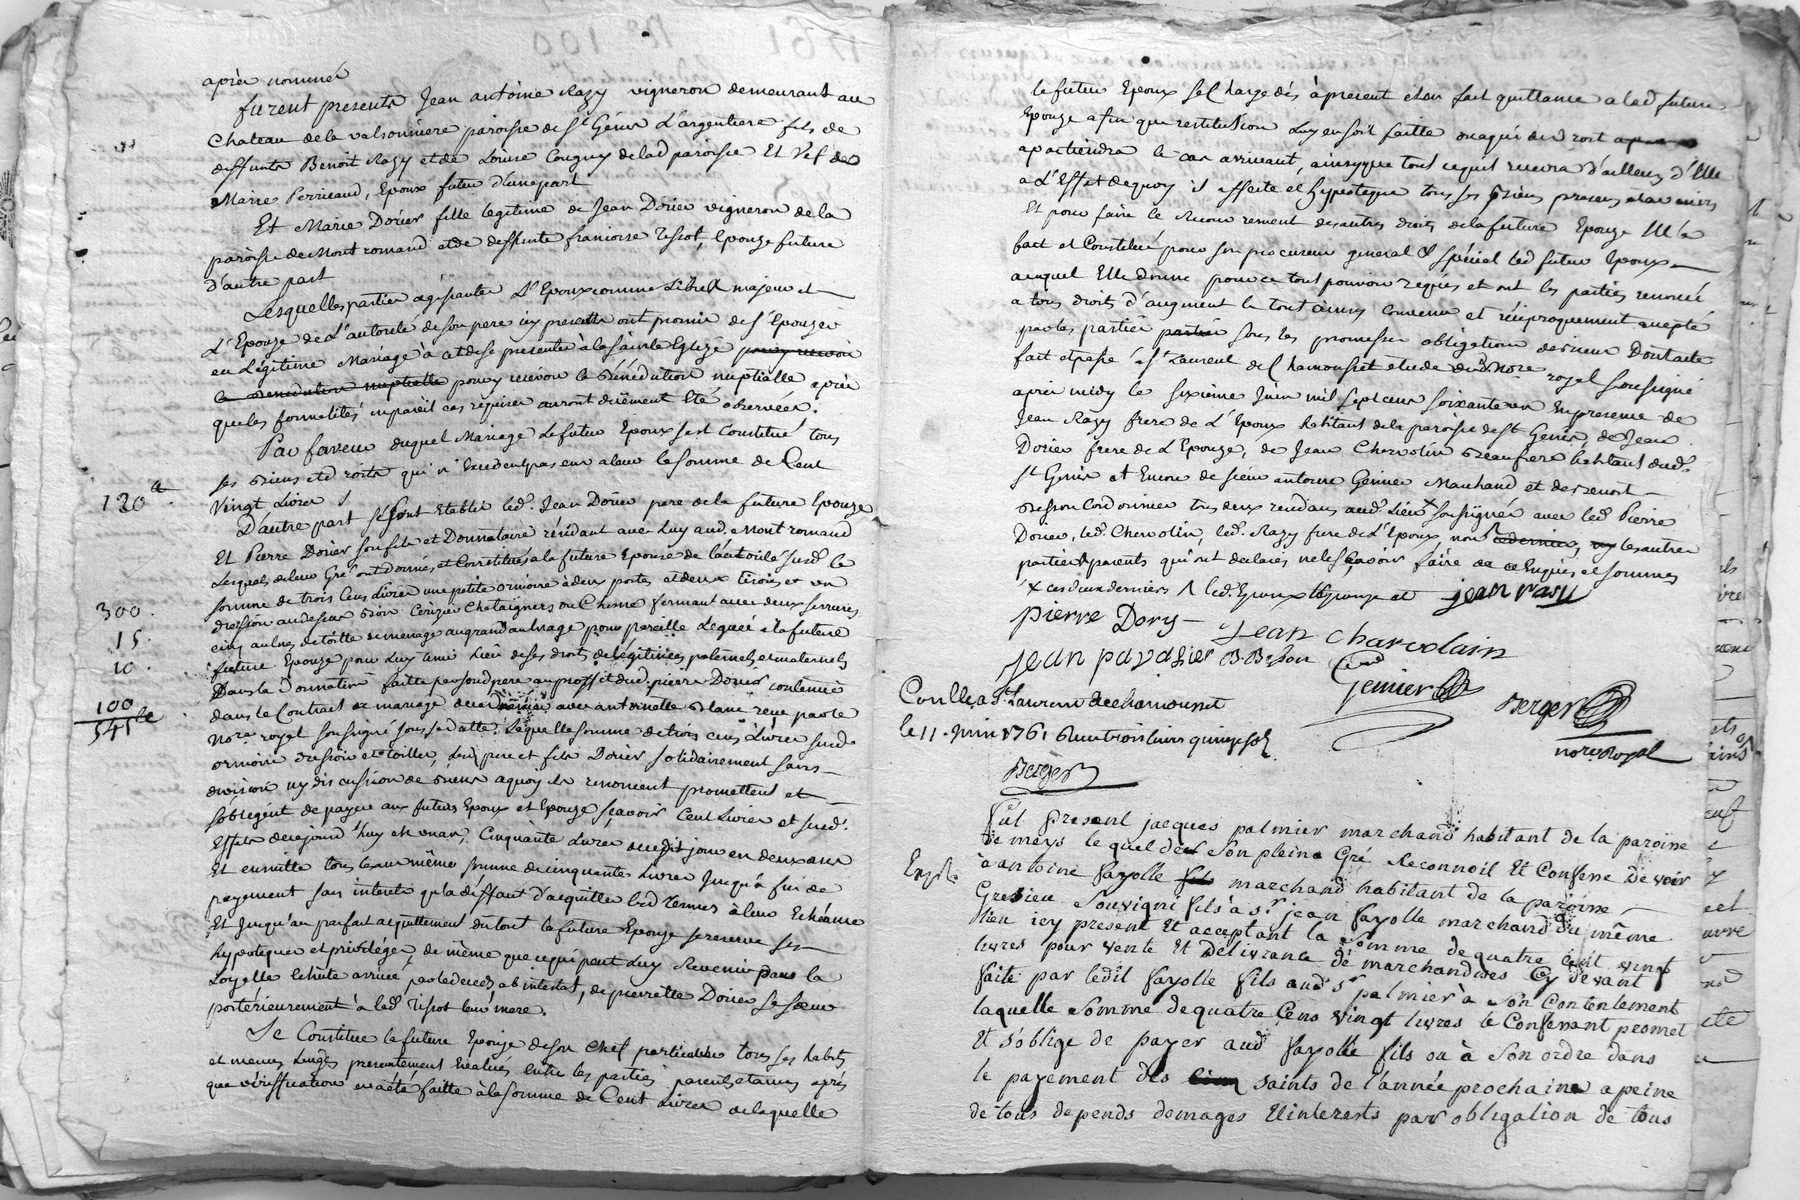 après nommés
furent presents Jean antoine Razy vigneron demeurant au
Chateau de la valsonniere paroisse de St Génis L'argentiere fils de
deffunts Benoit Razy et de Loüise Cougny de lad paroisse Et Vef de
Marie Perricaud, Epoux futur d'une part
Et Marie Dorier fille legitime de Jean Dorier vigneron de la
paroisse de Mont romand et de deffunte francoise Tissot, Epouse future
d'autre part
Lesquelles parties agissantes L'Epoux comme Libre majeur et
L'Epouze de L'autorité de son pere icy present ont promis de s'Epouzer
en Légitime Mariage à cet de se presenter à la sainte Eglize pour y recevoir
la benediction nuptialle pour y recevoir la bénédiction nuptialle après
que les formalités en pareil cas requises auront deüement Eté observées.
Par faveur duquel Mariage Le futur Epoux s'est Constitué tous
ses biens et droits qui n'Excedent pas en valeur la somme de Cent
120tt
Vingt Livres
D'autre part se sont Etablis led. Jean Dorier pere de la future Epouze
Et Pierre Dorier son fils et Donnataire résidant avec Luy aud. Mont romand
Lesquels de leur Gré ont donnés et Constitués à la future Epouze de l'autorité susd la
300.
somme de trois Cens Livres une petite armoire à deux portes et deux tiroirs et un
dression au dessus bois Cerizier Chataigners ou Chesne fermant avec deux serrures
15.
cinq aulnes de toille de menage au grand aulnage pour pareille Leguée à la future
10.
future Epouze pour Luy tenir Lieu de ses droits de légitimes paternels et maternels
Dans la donnation faitte par son d pere au proffit dud. pierre Dorier contenüe
100
dans le Contrat de mariage de ce dernier avec antoinette blanc reçu par le
545tt
Nore royal soussigné sous sa datte. Laquelle somme de trois cens Livres susd
armoire dression et toilles, Lesd pere et fils Dorier solidairement sans
division ny discussion de biens aquoy ils renoncent promettent et
s'obligent de payer aux futurs Epoux et Epouze sçavoir Cent Livres et susd.
Effets de ce jourd'huy en un an, Cinquante Livres de ce dit jour en deux ans
Et ensuitte tous les ans même somme de cinquante Livres Jusqu'à fin de
payement sans interets qu'a deffaut d'acquitter lesd termes à leur Echéance
Et Jusqu'au parfait acquittement du tout la future Epouze se reserve ses
hypoteques et privileges, de même que ce qui peut Luy Revenir dans la
Loyelle Echute arrivée par le decés ab intestat, de pierrette Dorier Sa soeur
postérieurement à lad Tissot leur mere.
Se Constitue la future Epouze de son Chef particulier tous ses habits
et menus Linges presentement Evalués entre les parties parents et amis après
que vériffication en a été faitte à la somme de Cent Livres de laquelle
le futur Epoux se Charge dés à present et en fait quittance a lad future
Epouze afin que restitution Luy en soit faitte ou à qui de droit
apartiendra le cas arrivant, ainsy que tout ce qu'il recevra d'ailleurs d'Elle
à L'Effet dequoy il affecte et hypoteque tous ses biens presens et avenirs
Et pour faire le Recouvrement des autres droits de la future Epouze Elle
fait et Constitué pour son procureur general & spécial led futur Epoux
auquel Elle donne pour ce tout pouvoir requis et ont les parties renoncé
a tous droits d'augment le tout ainsy convenu et réciproquement accepté
par les parties parties sous les promesses obligations de biens Dont acte
fait et passé à St Laurent de Chamousset etude dud Nore royal soussigné
après midy le sixième Juin mil sept cens soixante un En presence de
Jean Razy frere de L'Epoux habitant de la paroisse de St Genis, de Jean
Dorier frere de L'Epouze, de Jean Chervolin beaufrere habitant dud.
St Genis et Encore de sieur antoine Génier Marchand et de benoit
Besson Cordonnier tous deux residans aud. Lieu X soussignés avec led Pierre
Dorier, led. Chervolin, led. Razy frere de L'Epoux, non ce dernier, ny les autres
parties & parents qui ont declarés ne le sçavoir faire de ce Enquis et sommés
X ces deux derniers /\ led. Epoux l'Epouze et jean razy
pierre Dory
Jean Charvolain
jean pavasier B. Besson
Genier
Berger
nore Royal
Conllé a St Laurent de chamousset
le 11. Juin 1761 Reçu trois livres quinze sols
Berger
Fut Present jacques palmier marchand habitant de la paroisse
De meys le quel de Son pleine Gré Reconnoit Et Confesse De voir
Expée
à antoine fayolle fils marchand habitant de la paroisse
Gresieu Souvigni fils à Sr jean fayolle marchand du même
lieu icy present Et acceptant la Somme de quatre cent vingt
livres pour vente Et Delivrance de marchandises Cy devant
faite par ledit fayolle fils aud Sr palmier à Son Contentement
laquelle Somme de quatre Cens vingt livres le Confessant promet
Et s'oblige de payer aud fayolle fils ou à Son ordre dans
le payement des saints de l'année prochaine a peine
de tous depends domages Et interests par obligation de tous